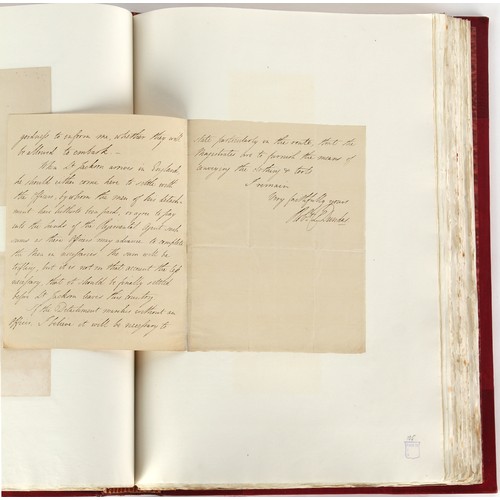 goodness to inform me, whether they will
be allowed to embark —
When Lt Jackson arrives in England,
he should either come here to settle with
the officer, by whom the men of his detach-
ment have hitherto been paid, or agree to pay
into the hands of the Regimental Agent such
sums as their officers may advance to complete
the Men in necessaries. The sum will be
trifling, but it is not on that account the less
necessary that it should be finally settled
before Lt Jackson leaves this country.
If the Detachment marches without an
officer, I believe it will be necessary to
state particularly in the route, that the
Magistrates are to furnish the means of
conveying the clothing & tents
I remain
Very faithfully yours
Dundas
125